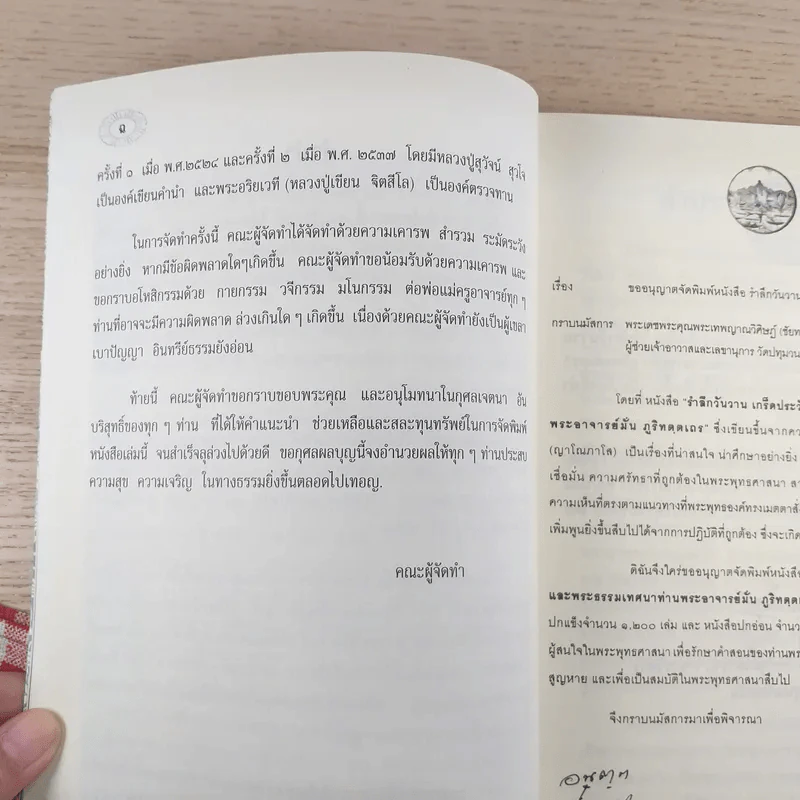 ฉ
ครั้งที่ ๑ เมื่อ พ.ศ.๒๕๒๔ และครั้งที่ ๒ เมื่อ พ.ศ. ๒๕๓๗ โดยมีหลวงปู่สุวัจน์ สุวโจ
เป็นองค์เขียนคำนำ และพระอริยเวที (หลวงปู่เขียน ฐิตสีโล) เป็นองค์ตรวจทาน
ในการจัดทำครั้งนี้ คณะผู้จัดทำได้จัดทำด้วยความเคารพ สำรวม ระมัดระวัง
อย่างยิ่ง หากมีข้อผิดพลาดใดๆเกิดขึ้น คณะผู้จัดทำขอน้อมรับด้วยความเคารพ และ
ขอกราบอโหสิกรรมด้วย กายกรรม วจีกรรม มโนกรรม ต่อพ่อแม่ครูอาจารย์ทุก ๆ
ท่านที่อาจจะมีความผิดพลาด ล่วงเกินใด ๆ เกิดขึ้น เนื่องด้วยคณะผู้จัดทำยังเป็นผู้เขลา
เบาปัญญา อินทรีย์ธรรมยังอ่อน
ท้ายนี้ คณะผู้จัดทำขอกราบขอบพระคุณ และอนุโมทนาในกุศลเจตนา อัน
บริสุทธิ์ของทุก ๆ ท่าน ที่ได้ให้คำแนะนำ ช่วยเหลือและสละทุนทรัพย์ในการจัดพิมพ์
หนังสือเล่มนี้ จนสำเร็จลุล่วงไปด้วยดี ขอกุศลผลบุญนี้จงอำนวยผลให้ทุก ๆ ท่านประสบ
ความสุข ความเจริญ ในทางธรรมยิ่งขึ้นตลอดไปเทอญ.
คณะผู้จัดทำ
เรื่อง ขออนุญาตจัดพิมพ์หนังสือ รำลึกวันวาน
กราบนมัสการ พระเดชพระคุณพระเทพญาณวิศิษฏ์ (ชัยท
ผู้ช่วยเจ้าอาวาสและเลขานุการ วัดปทุมวน
โดยที่ หนังสือ "รำลึกวันวาน เกร็ดประวั
พระอาจารย์มั่น ภูริทตฺตเถร" ซึ่งเขียนขึ้นจากคว
(ญาโณภาโส) เป็นเรื่องที่น่าสนใจ น่าศึกษาอย่างยิ่ง
เชื่อมั่น ความศรัทธาที่ถูกต้องในพระพุทธศาสนา สา
ความเห็นที่ตรงตามแนวทางที่พระพุทธองค์ทรงเมตตาสั่
เพิ่มพูนยิ่งขึ้นสืบไปได้จากการปฏิบัติที่ถูกต้อง ซึ่งจะเกิด
ดิฉันจึงใคร่ขออนุญาตจัดพิมพ์หนังสือ
และพระธรรมเทศนาท่านพระอาจารย์มั่น ภูริทตฺต
ปกแข็งจำนวน ๑,๒๐๐ เล่ม และ หนังสือปกอ่อน จำนว
ผู้สนใจในพระพุทธศาสนา เพื่อรักษาคำสอนของท่านพร
สูญหาย และเพื่อเป็นสมบัติในพระพุทธศาสนาสืบไป
จึงกราบนมัสการมาเพื่อพิจารณา